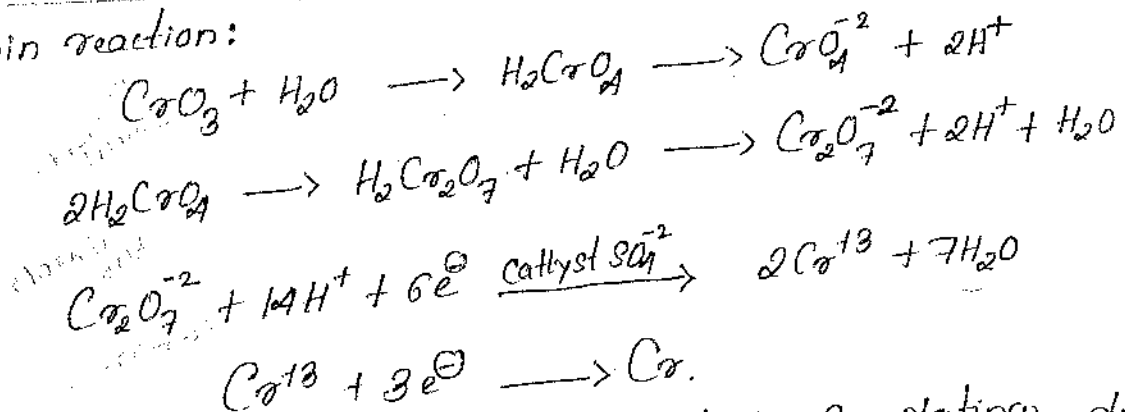 in reaction:
CrO₃ + H₂O ⟶ H₂CrO₄ ⟶ CrO₄⁻² + 2H⁺
2H₂CrO₄ ⟶ H₂Cr₂O₇ + H₂O ⟶ Cr₂O₇⁻² + 2H⁺ + H₂O
Cr₂O₇⁻² + 14H⁺ + 6e⊖ cattyst SO₄⁻² ⟶ 2Cr⁺³ + 7H₂O
Cr⁺³ + 3e⊖ ⟶ Cr.
plating